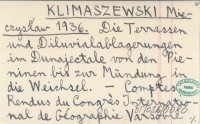 KLIMASZEWSKI Mie-
czysław 1936. Die Terrassen
und Diluvialablagerungen
im Dunajectale von den Pie-
ninen bis zur Mündung in
die Weichsel. — Comptes
Rendus du Congrès Internatio-
nal de Géographie Varsovie